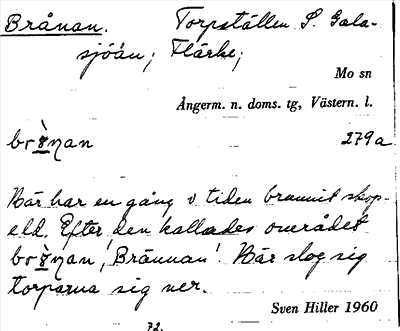 Brånan. Torpställen S. Gala-
sjöån; Flärke;
Mo sn
Ångerm. n. doms. tg, Västern. l.
279a
Här har en gång i tiden brunnit skog-
eld. Efter den kallades området
'Brännan'. Här slog sig
torparna sig ner.
Sven Hiller 1960
72.